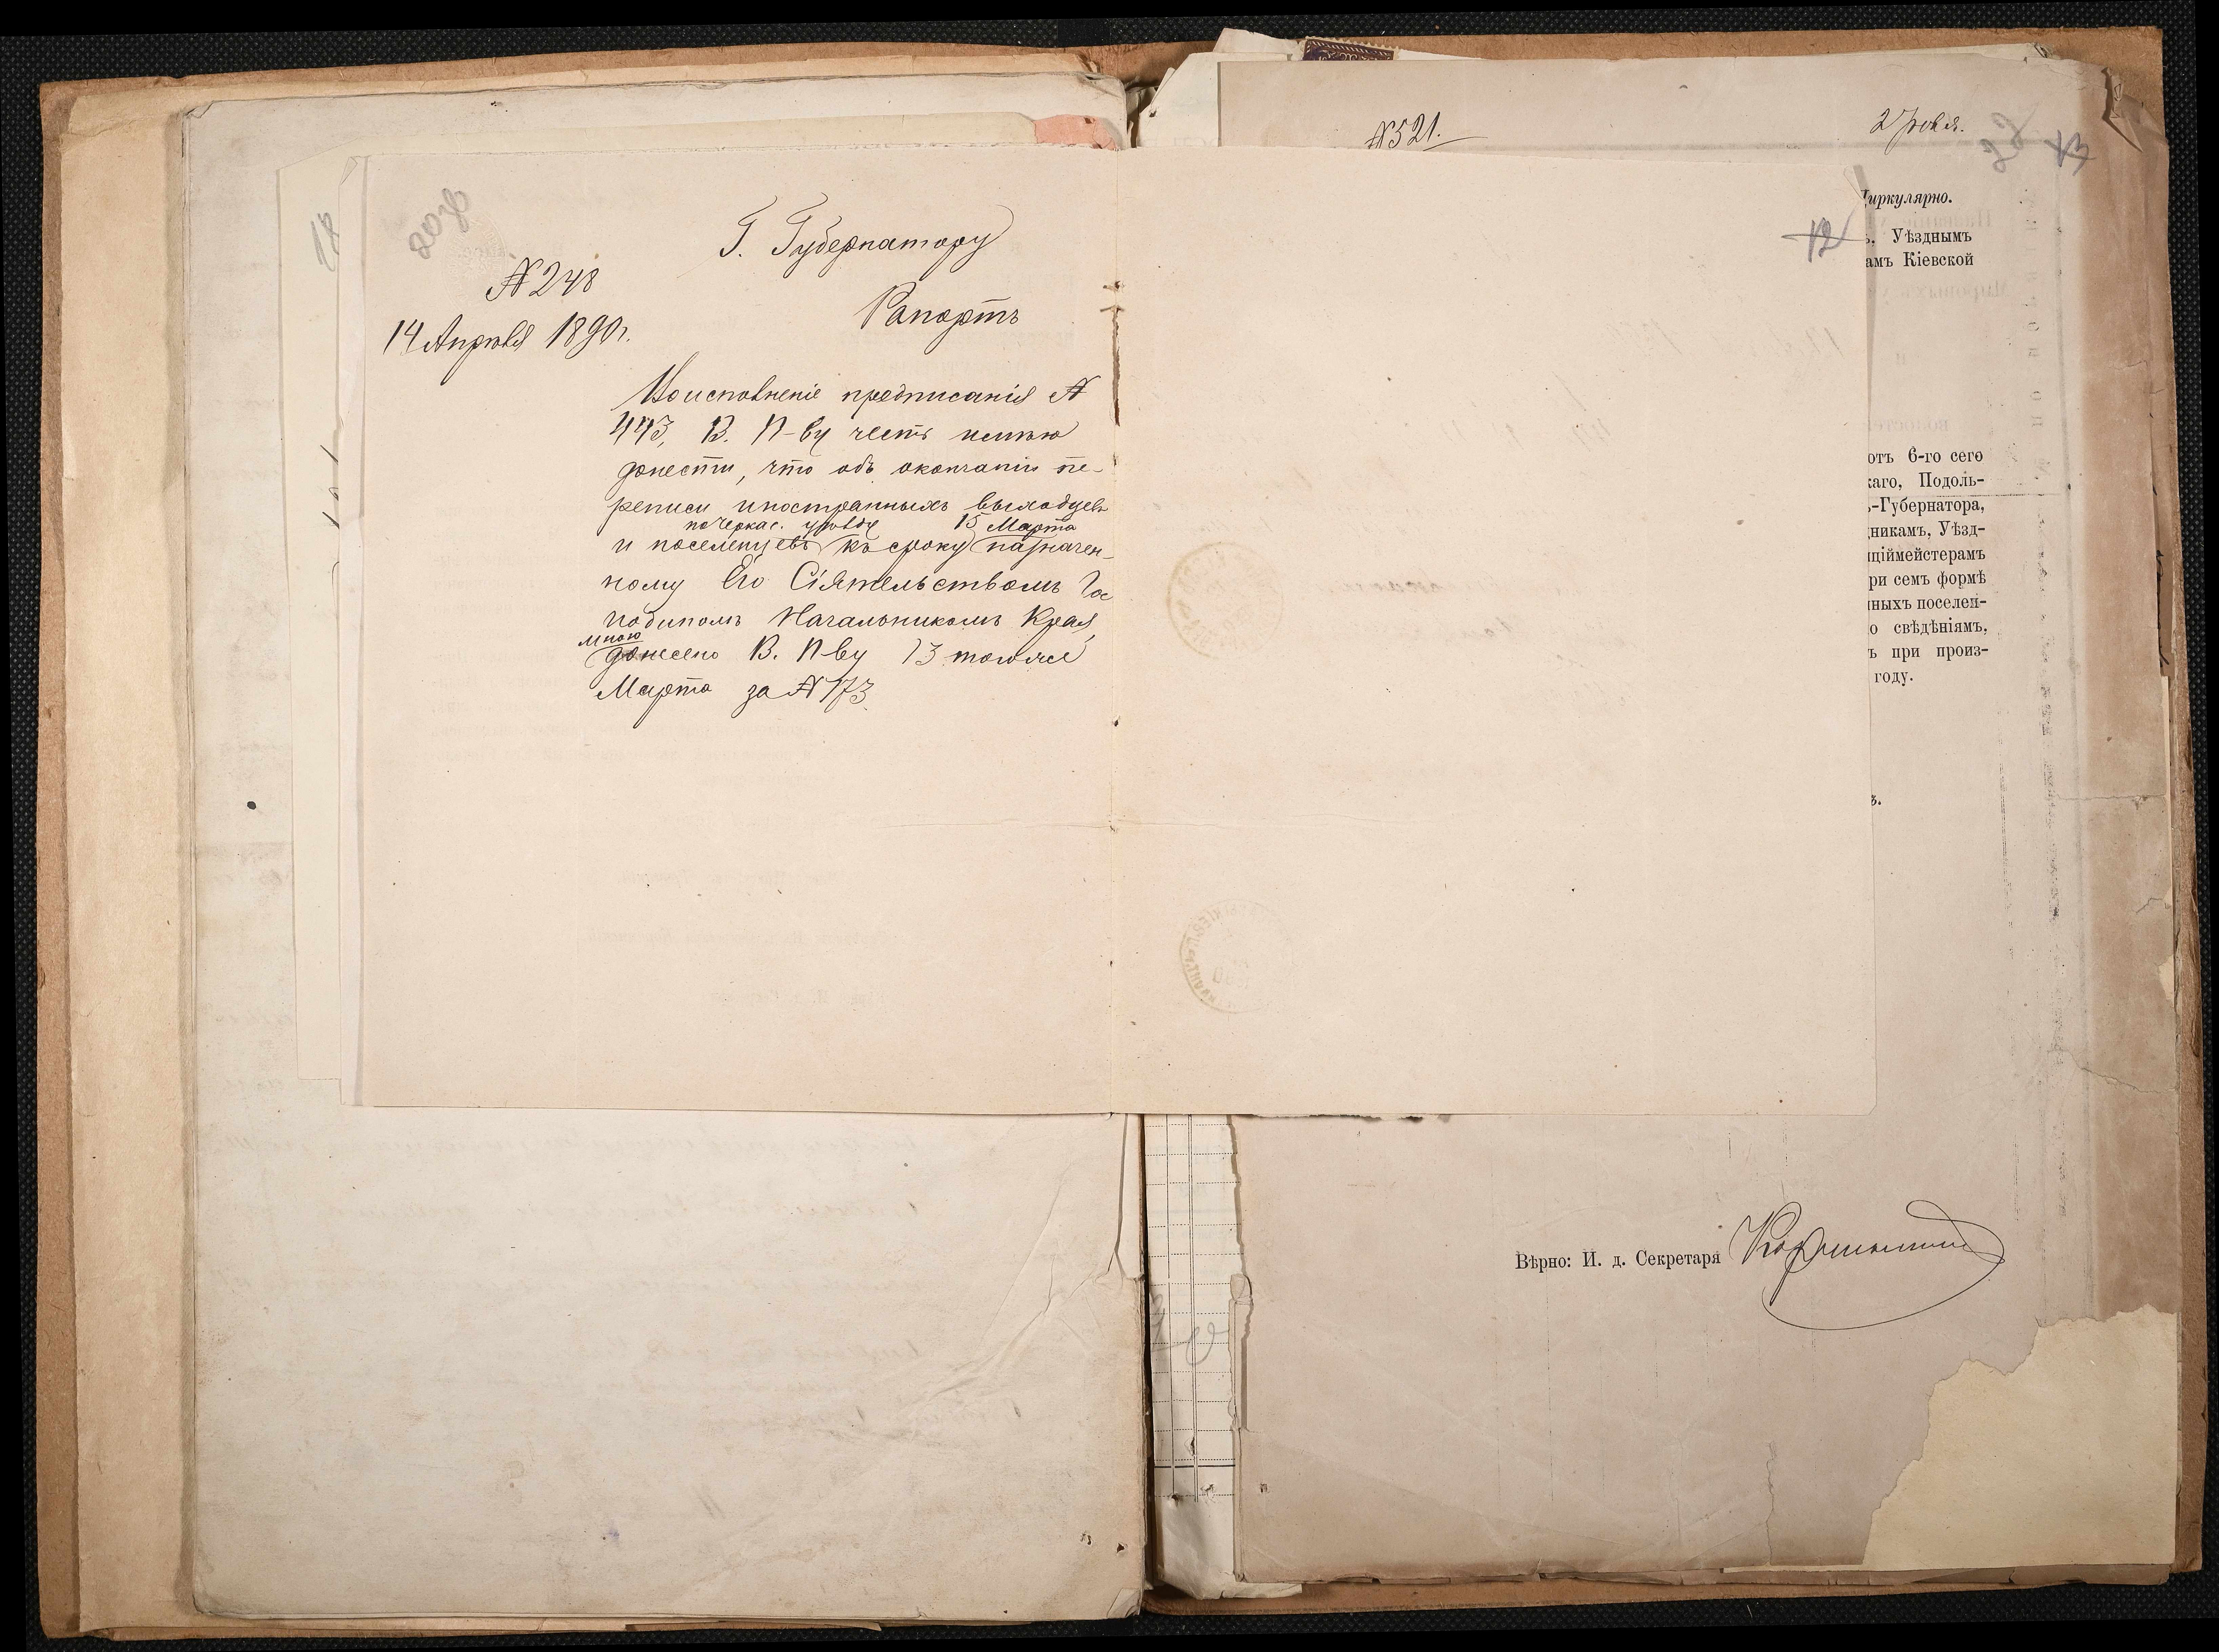 № 248
14 Апрѣля 1890 г.
Г. Губернатору
Рапортъ
Воисполненіе предписанія №
443, В. П-ву честь имѣю
донести, что объ окончаніи пе-
реписи иностранныхъ выходцевъ
по Черкас. уѣзду 15 Марта
и поселенцевъ къ сроку назначен-
ному Его Сіятельствомъ Гос
подиномъ Начальникомъ Края,
мною
донесено В. П-ву 13 того же
Марта за № 173.
12
№ 521.
Циркулярно.
Уѣзднымъ
амъ Кіевской
отъ 6-го сего
каго, Подоль-
-Губернатора,
никамъ, Уѣзд-
ціймейстерамъ
ри семъ формѣ
нныхъ поселен-
о свѣдѣніямъ,
ъ при произ-
году.
ъ.
Вѣрно: И. д. Секретаря